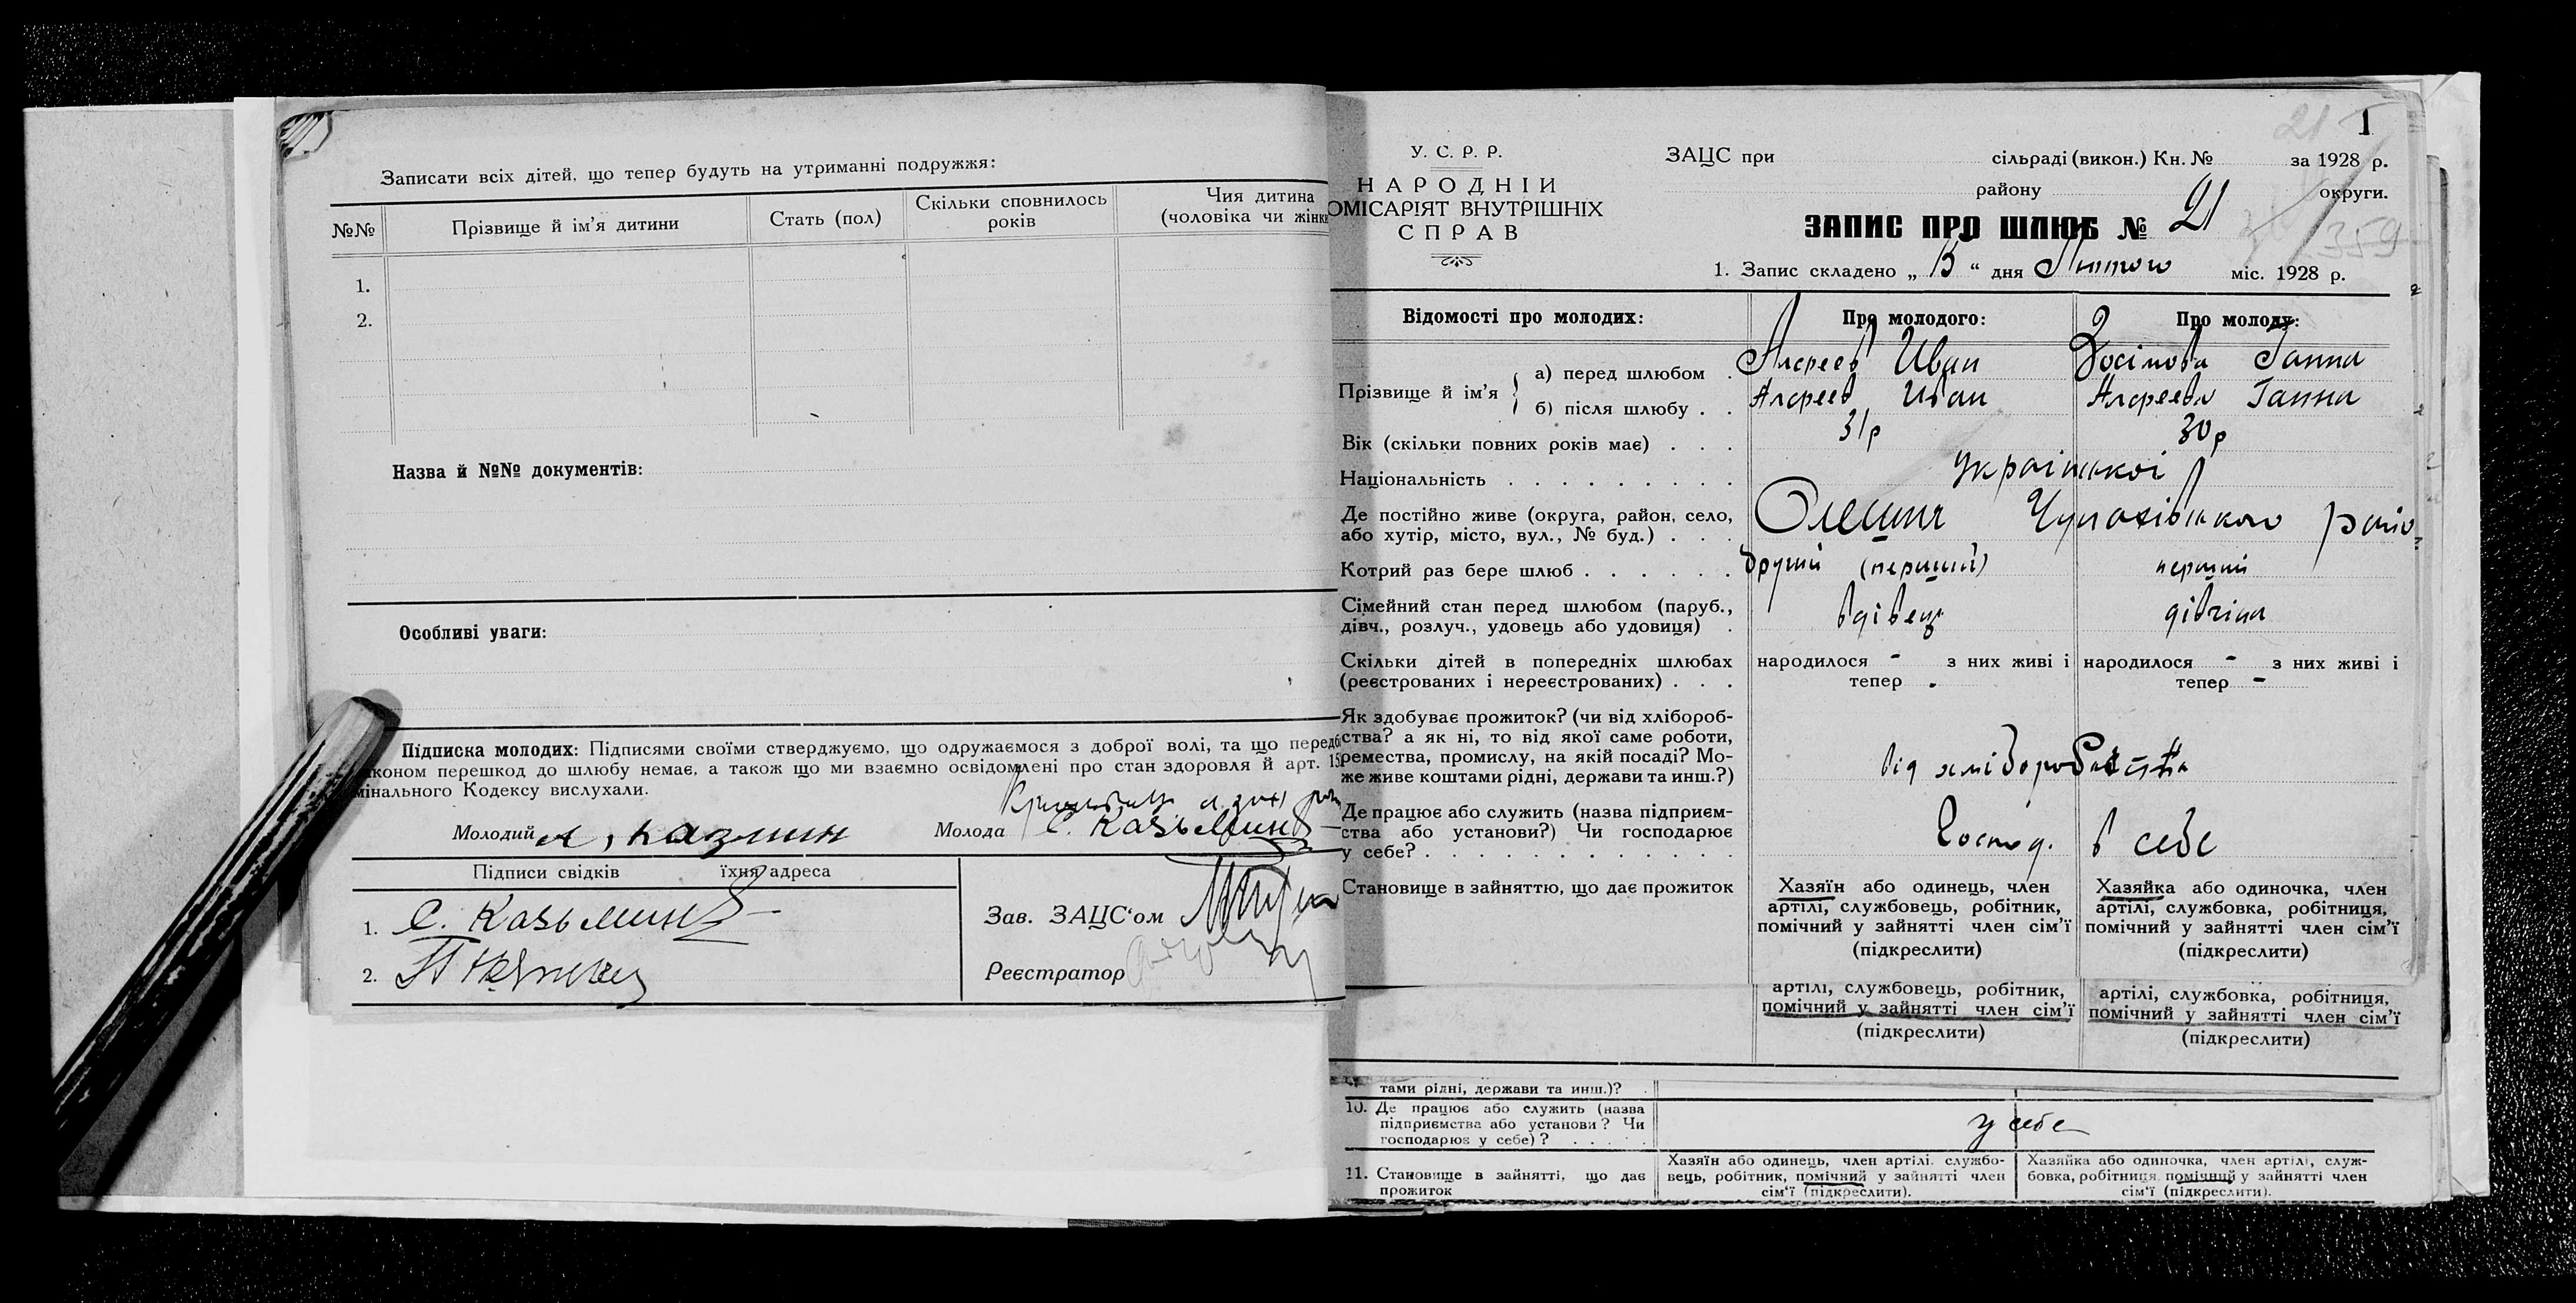 Записати всіх дітей, що тепер будуть на утриманні подружжя:
№№ Прізвище й ім'я дитини Стать (пол) Скільки сповнилось років Чия дитина (чоловіка чи жінки
1.
2.
Назва й №№ документів:
Особливі уваги:
Підписка молодих: Підписями своїми стверджуємо, що одружаємося з доброї волі, та що передб
аконом перешкод до шлюбу немає, а також що ми взаємно освідомлені про стан здоровля й арт. 15
мінального Кодексу вислухали.
Молодий А, казмин Молода С. Казьмин
Підписи свідків їхня адреса
1. С. Казьмин
2.
Зав. ЗАЦС'ом
Реєстратор
1
21
359
У. С. Р. Р.
НАРОДНІЙ
ОМІСАРІЯТ ВНУТРІШНІХ
СПРАВ
ЗАЦС при сільраді (викон.) Кн. № за 1928 р.
району округи.
ЗАПИС ПРО ШЛЮБ № 21
1. Запис складено „ 13 “ дня Лютого міс. 1928 р.
Відомості про молодих: Про молодого: Про молоду:
Прізвище й ім'я
а) перед шлюбом . Алфеев Иван Зосімова Ганна
б) після шлюбу . . Алфеев Иван Алфеева Ганна
Вік (скільки повних років має) . . . 31р 30р
Національність . . . . . . . . . української
Де постійно живе (округа, район, село,
або хутір, місто, вул., № буд.) . . . Олешня Чупахівського райо
Котрий раз бере шлюб . . . . . . другий (перший) перший
Сімейний стан перед шлюбом (паруб.,
дівч., розлуч., удовець або удовиця) . вдівец дівчіна
Скільки дітей в попередніх шлюбах
(реєстрованих і нереєстрованих) . . .
народилося - з них живі і тепер -
народилося - з них живі і тепер -
Як здобуває прожиток? (чи від хлібороб-
ства? а як ні, то від якої саме роботи,
ремества, промислу, на якій посаді? Мо-
же живе коштами рідні, держави та инш.?)
від хліборобства
Де працює або служить (назва підприєм-
ства або установи?) Чи господарює
у себе? . . . . . . . . . . . .
Господ. в себе
Становище в зайняттю, що дає прожиток
Хазяїн або одинець, член
артілі, службовець, робітник,
помічний у зайнятті член сім'ї
(підкреслити)
Хазяйка або одиночка, член
артілі, службовка, робітниця,
помічний у зайнятті член сім'ї
(підкреслити)
артілі, службовець, робітник,
помічний у зайнятті член сім'ї
(підкреслити)
артілі, службовка, робітниця,
помічний у зайнятті член сім'ї
(підкреслити)
тами рідні, держави та инш.)?
10. Де працює або служить (назва
підприємства або установи? Чи
господарює у себе)? . . . . .
у себе
11. Становище в зайнятті, що дає
прожиток
Хазяїн або одинець, член артілі, службо-
вець, робітник, помічний у зайнятті член
сім'ї (підкреслити).
Хазяйка або одиночка, член артілі, служ-
бовка, робітниця, помічний у зайнятті член
сім'ї (підкреслити).